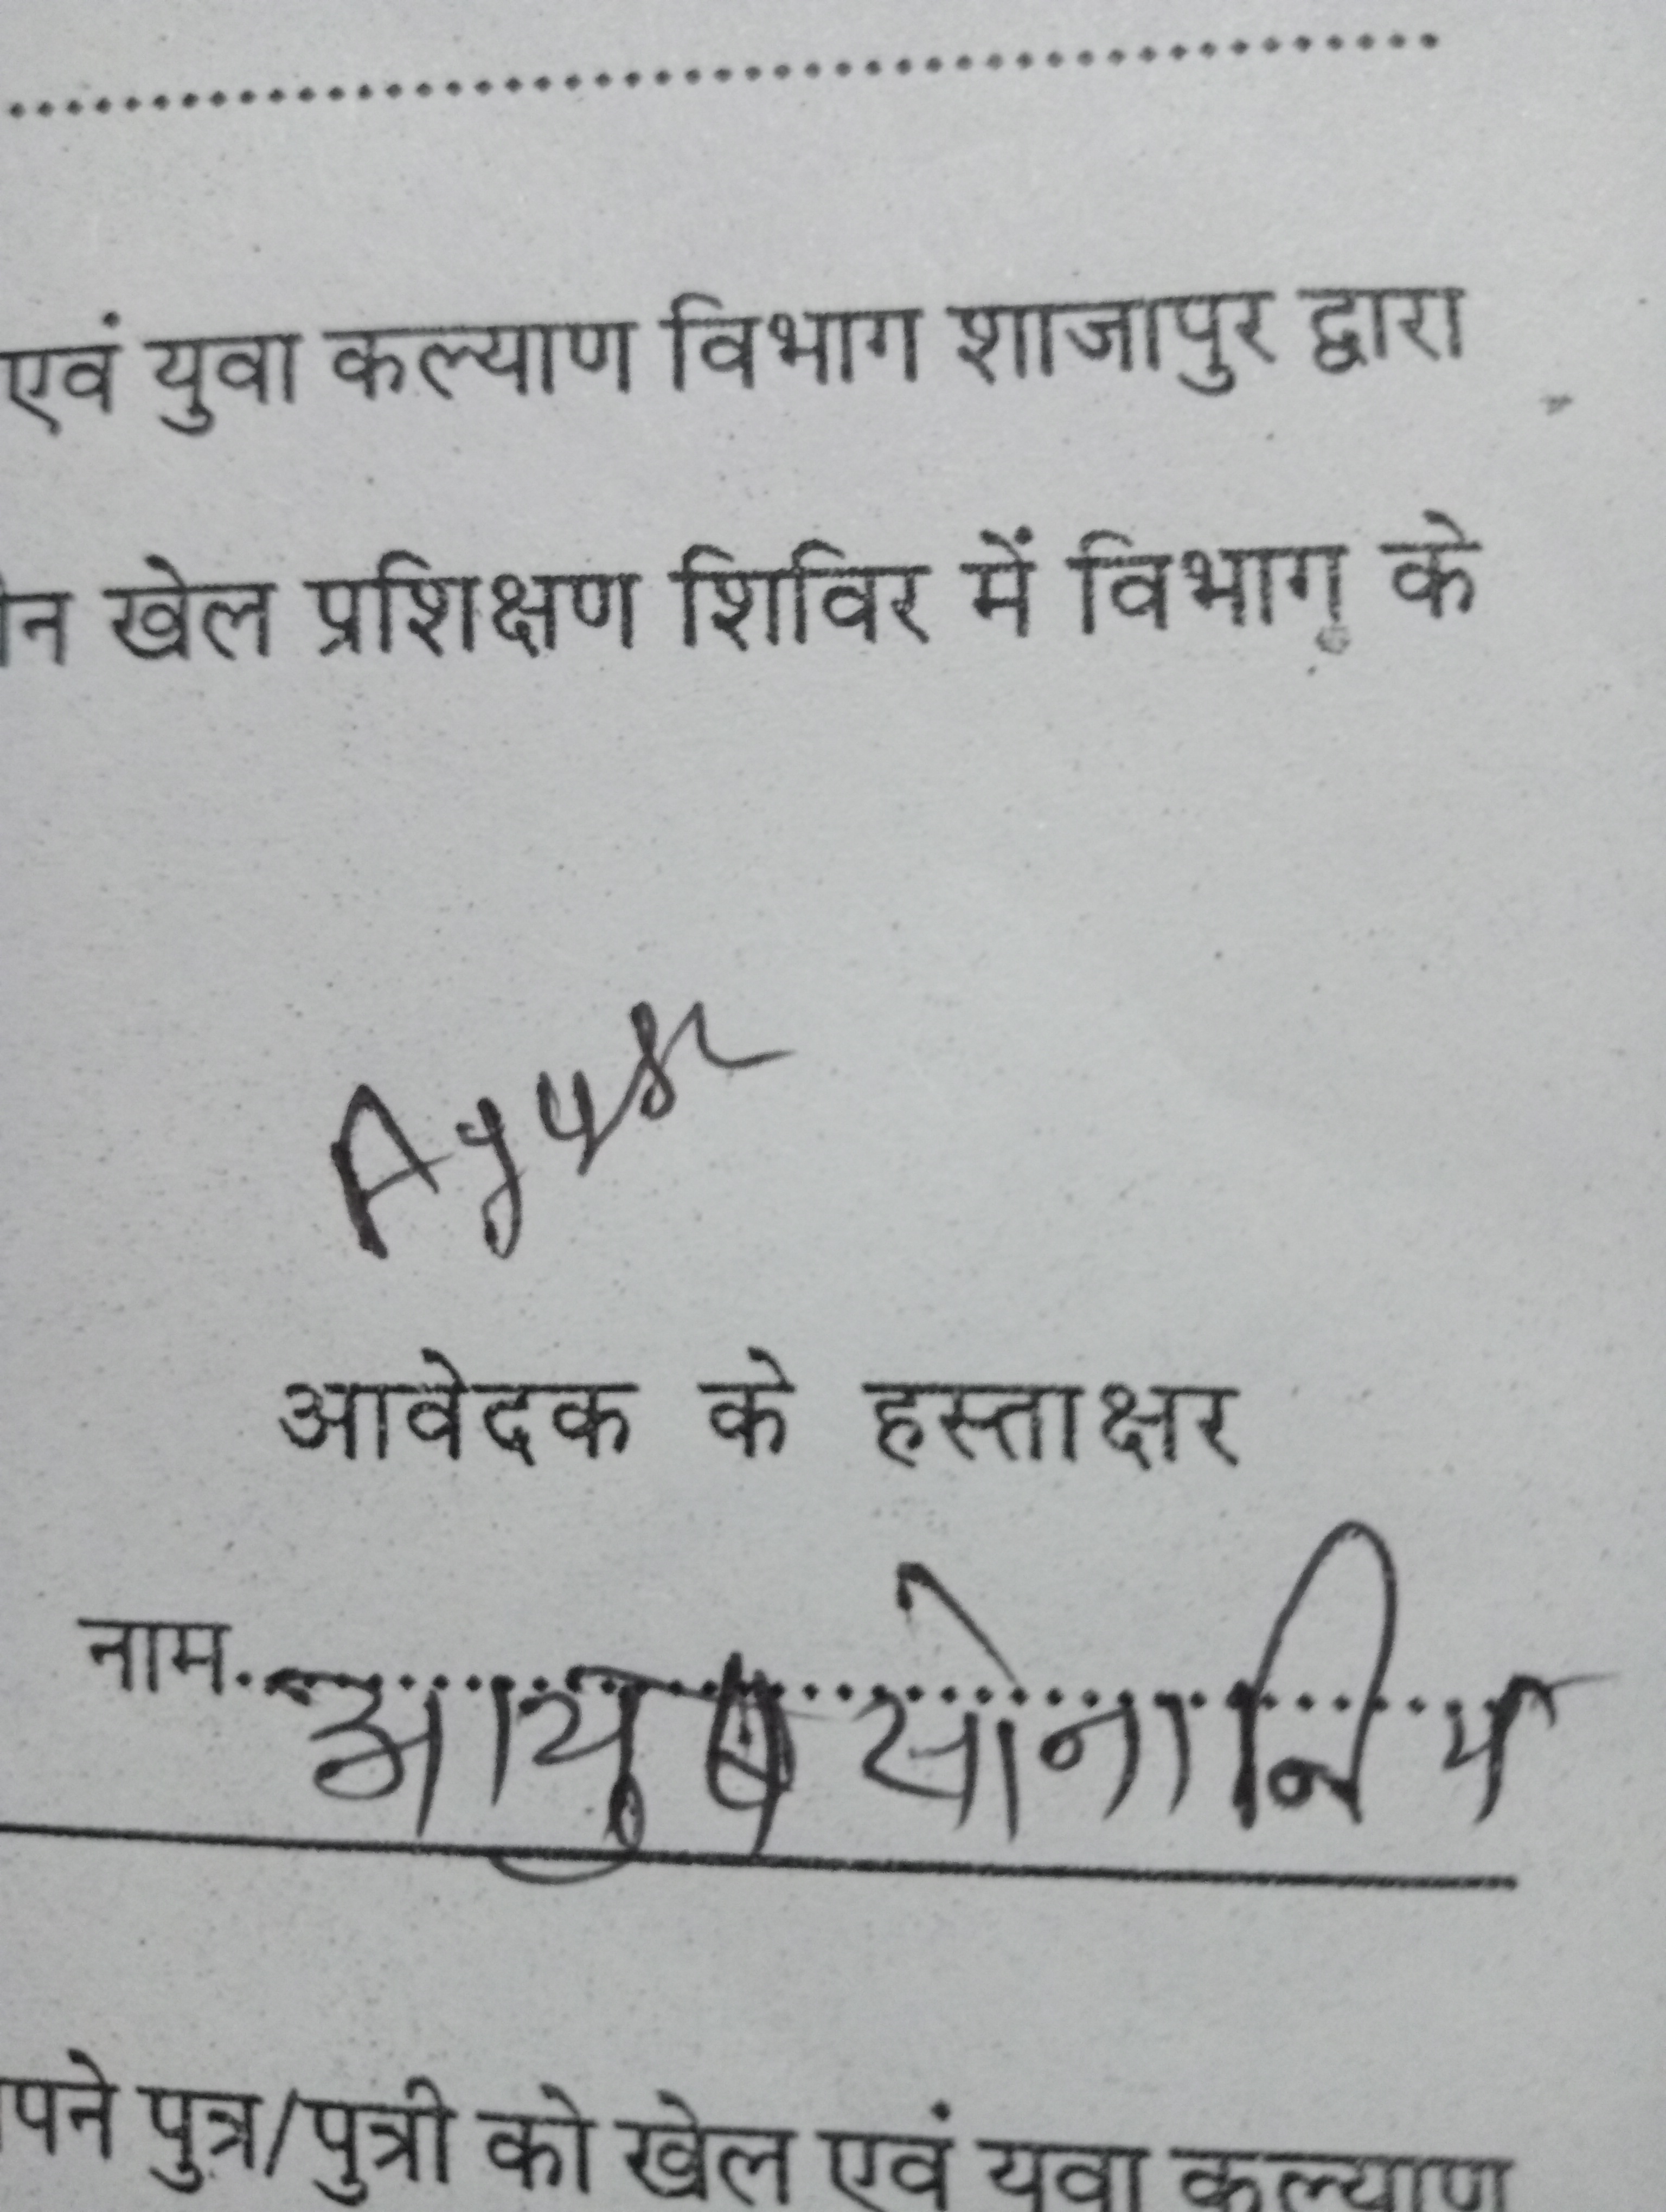 एवं युवा कल्याण विभाग शाजापुर द्वारा
न खेल प्रशिक्षण शिविर में विभाग के
Ayush
आवेदक के हस्ताक्षर
नाम. आयुष सोनानिय
पने पुत्र/पुत्री को खेल एवं युवा कल्याण